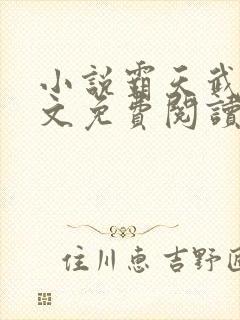 小說霸天武
文免費閱讀
住川惠吉野匠